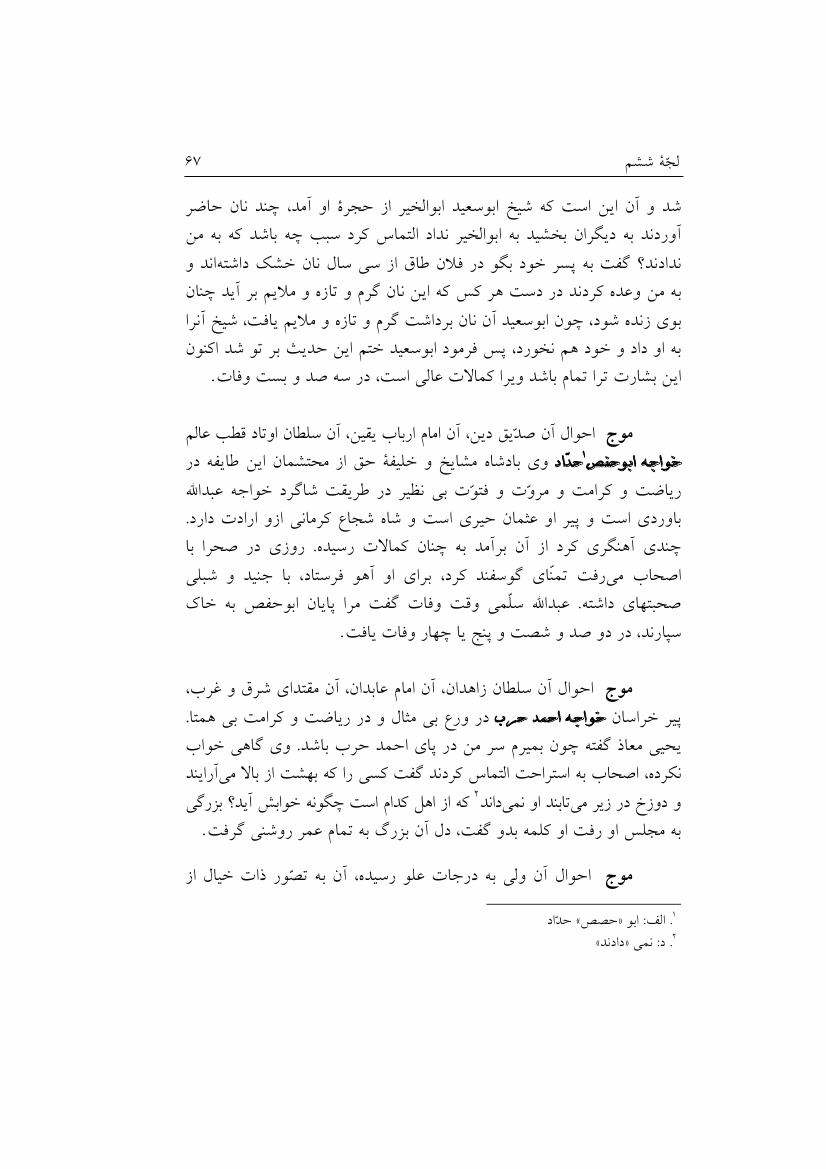 لجّهٔ ششم ۶۷
شد و آن این است که شیخ ابوسعید ابوالخیر از حجرهٔ او آمد، چند نان حاضر
آوردند به دیگران بخشید به ابوالخیر نداد التماس کرد سبب چه باشد که به من
ندادند؟ گفت به پسر خود بگو در فلان طاق از سی سال نان خشک داشته‌اند و
به من وعده کردند در دست هر کس که این نان گرم و تازه و ملایم بر آید چنان
بوی زنده شود، چون ابوسعید آن نان برداشت گرم و تازه و ملایم یافت، شیخ آنرا
به او داد و خود هم نخورد، پس فرمود ابوسعید ختم این حدیث بر تو شد اکنون
این بشارت ترا تمام باشد ویرا کمالات عالی است، در سه صد و بست وفات.
موج احوال آن صدّیق دین، آن امام ارباب یقین، آن سلطان اوتاد قطب عالم
خواجه ابوحفص۱حدّاد وی بادشاه مشایخ و خلیفهٔ حق از محتشمان این طایفه در
ریاضت و کرامت و مروّت و فتوّت بی نظیر در طریقت شاگرد خواجه عبدالله
باوردی است و پیر او عثمان حیری است و شاه شجاع کرمانی ازو ارادت دارد.
چندی آهنگری کرد از آن برآمد به چنان کمالات رسیده. روزی در صحرا با
اصحاب می‌رفت تمنّای گوسفند کرد، برای او آهو فرستاد، با جنید و شبلی
صحبتهای داشته. عبدالله سلّمی وقت وفات گفت مرا پایان ابوحفص به خاک
سپارند، در دو صد و شصت و پنج یا چهار وفات یافت.
موج احوال آن سلطان زاهدان، آن امام عابدان، آن مقتدای شرق و غرب،
پیر خراسان خواجه احمد حرب در ورع بی مثال و در ریاضت و کرامت بی همتا.
یحیی معاذ گفته چون بمیرم سر من در پای احمد حرب باشد. وی گاهی خواب
نکرده، اصحاب به استراحت التماس کردند گفت کسی را که بهشت از بالا می‌آرایند
و دوزخ در زیر می‌تابند او نمی‌داند۲ که از اهل کدام است چگونه خوابش آید؟ بزرگی
به مجلس او رفت او کلمه بدو گفت، دل آن بزرگ به تمام عمر روشنی گرفت.
موج احوال آن ولی به درجات علو رسیده، آن به تصّور ذات خیال از
۱. الف: ابو «حصص» حدّاد
۲. د: نمی «دادند»